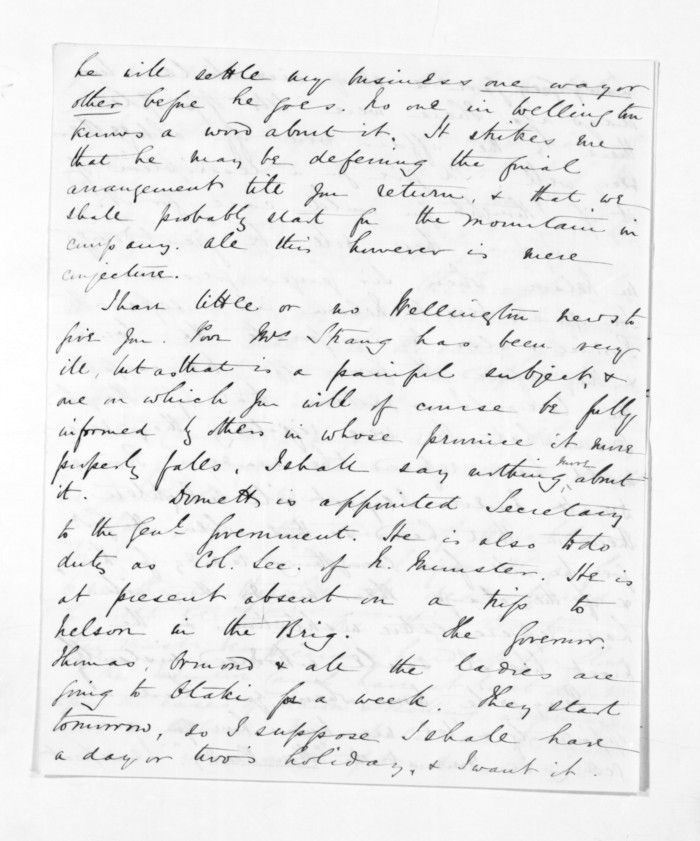 he will settle my business one way or
other before he goes. No one in Wellington
knows a word about it. It strikes me
that he may be deferring the final
arrangement till your return, & that we
shall probably start for the mountain in
company. All this however is mere
conjecture.
I have little or no Wellington news to
give you. Poor Mrs Strang has been very
ill, but as that is a painful subject, &
one on which you will of course be fully
informed by others in whose province it more
properly falls, I shall say nothing more about
it. Domett is appointed Secretary
to the Genl. Government. He is also to do
duty as Col. Sec. of N. Munster. He is
at present absent on a trip to
Nelson in the Brig. The Governor,
Thomas, Ormond & all the ladies are
going to Otaki for a week. They start
tomorrow, so I suppose I shall have
a day or two's holiday, & I want it.